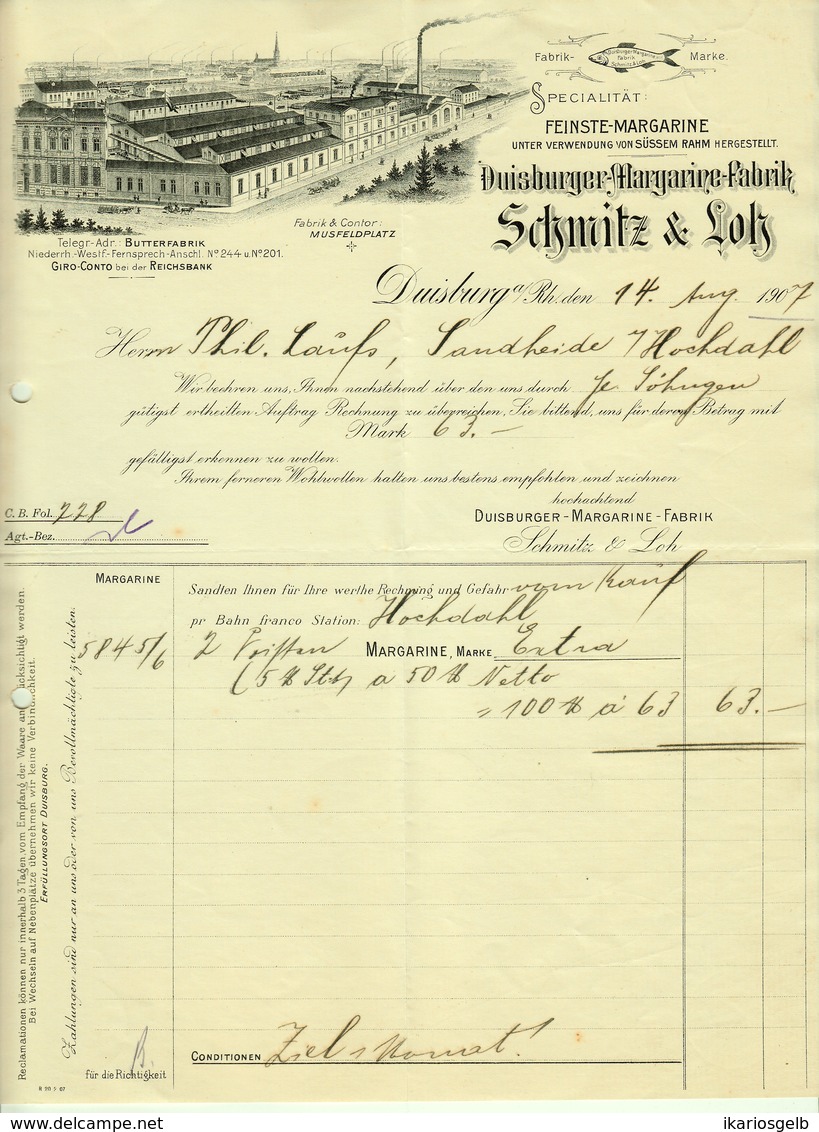 Fabrik- Marke.
Duisburger Margarine
Fabrik
Schmitz & Loh
SPECIALITÄT:
FEINSTE-MARGARINE
UNTER VERWENDUNG VON SÜSSEM RAHM HERGESTELLT.
Duisburger-Margarine-Fabrik
Schmitz & Loh
Fabrik & Contor:
MUSFELDPLATZ
Telegr.-Adr.: BUTTERFABRIK
Niederrh.-Westf.-Fernsprech-Anschl. No 244 u. No 201.
GIRO-CONTO bei der REICHSBANK
Duisburg a/Rh. den 14. Aug. 1907
Herrn Phil. Laufs, Sandheide / Hochdahl
Wir beehren uns, Ihnen nachstehend über den uns durch Söhngen
gütigst ertheilten Auftrag Rechnung zu übereichen, Sie bittend, uns für deren Betrag mit
Mark 63.-
gefälligst erkennen zu wollen.
Ihrem ferneren Wohlwollen halten uns bestens empfohlen und zeichnen
hochachtend
DUISBURGER-MARGARINE-FABRIK
Schmitz & Loh
C. B. Fol. 728
Agt.-Bez.
MARGARINE
Sandten Ihnen für Ihre werthe Rechnung und Gefahr vom Kauf
pr Bahn franco Station: Hochdahl
5845/6 2 MARGARINE, MARKE Extra
(5 ℔ Stck) a 50 ℔ Netto
= 100 ℔ á 63 63.-
Reclamationen können nur innerhalb 3 Tagen vom Empfang der Waare an berücksichtigt werden.
Bei Wechseln auf Nebenplätze übernehmen wir keine Verbindlichkeit.
ERFÜLLUNGSORT DUISBURG.
Zahlungen sind nur an uns oder von uns Bevollmächtigte zu leisten.
CONDITIONEN Ziel 1 Monat!
für die Richtigkeit
R 20 2 07
ikariosgelb